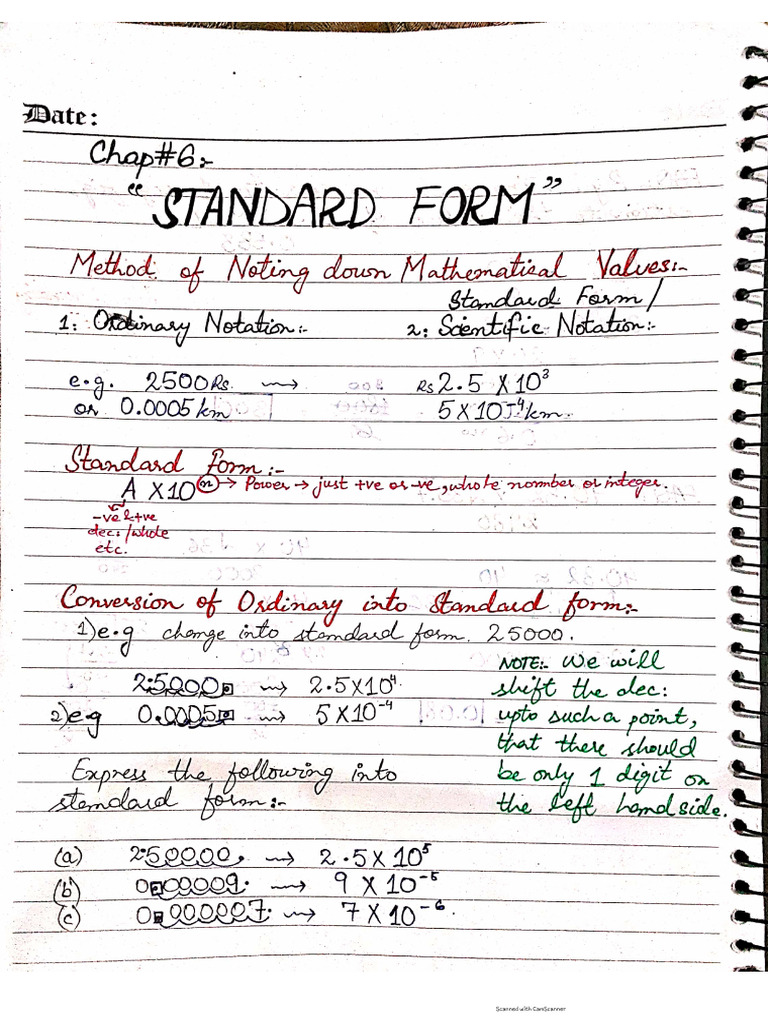 Date:
Chap#6:-
"STANDARD FORM"
Method of Noting down Mathematical Values:-
1: Ordinary Notation:-
Standard Form/
2: Scientific Notation:-
e.g. 2500Rs. ⇝ Rs 2.5 X 10³
or 0.0005 km 5 X 10⁻⁴ km.
Standard Form:-
A X 10ⁿ → Power → just +ve or -ve, whole nommber or integer.
-ve & +ve
dec:/whole
etc.
Conversion of Ordinary into Standard form:-
1) e.g change into standard form. 25000.
2.5000. ⇝ 2.5 X 10⁴.
2) e.g 0.0005. ⇝ 5 X 10⁻⁴
NOTE:- We will
shift the dec:
upto such a point,
that there should
be only 1 digit on
the left handside.
Express the following into
standard form:-
(a) 2.50000. ⇝ 2.5 X 10⁵
(b) 0.00009. ⇝ 9 X 10⁻⁵
(c) 0.000007. ⇝ 7 X 10⁻⁶.
Scanned with CamScanner